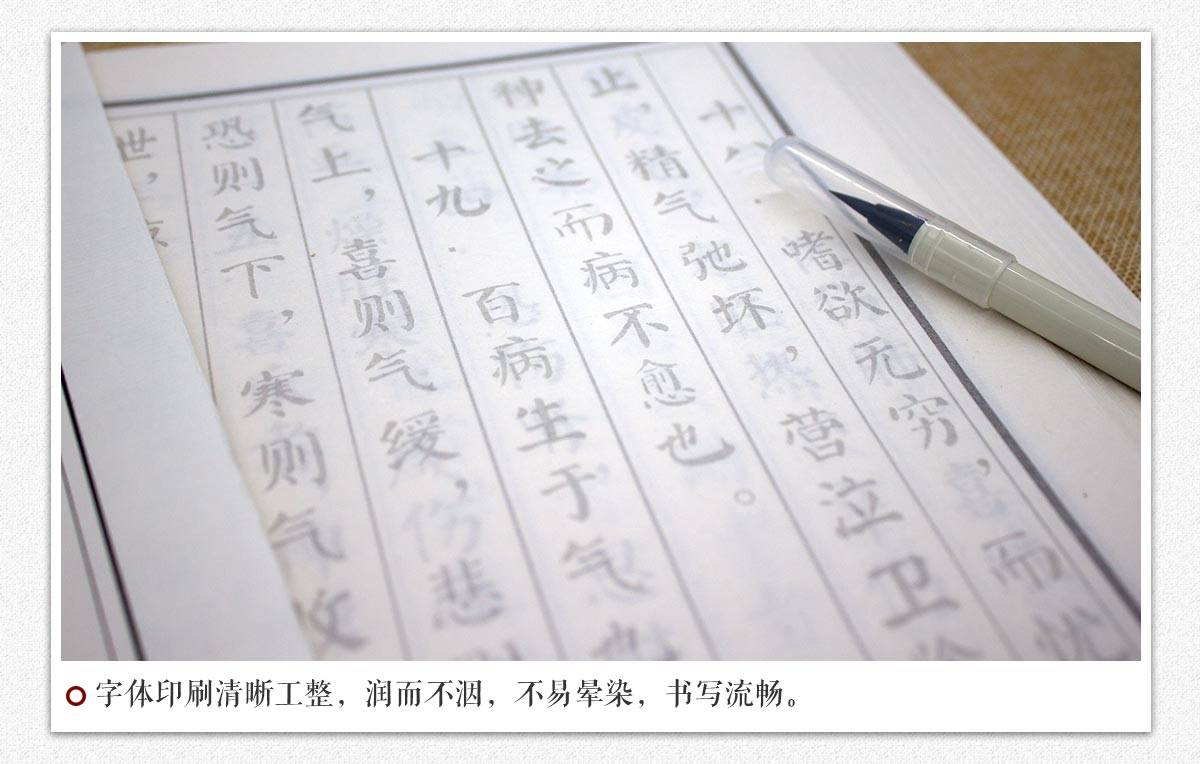 十八．嗜欲无穷，而忧
止，精气弛坏，营泣卫
神去之而病不愈也。
十九．百病生于气也
气上，喜则气缓，悲则
恐则气下，寒则气收
字体印刷清晰工整，润而不洇，不易晕染，书写流畅。